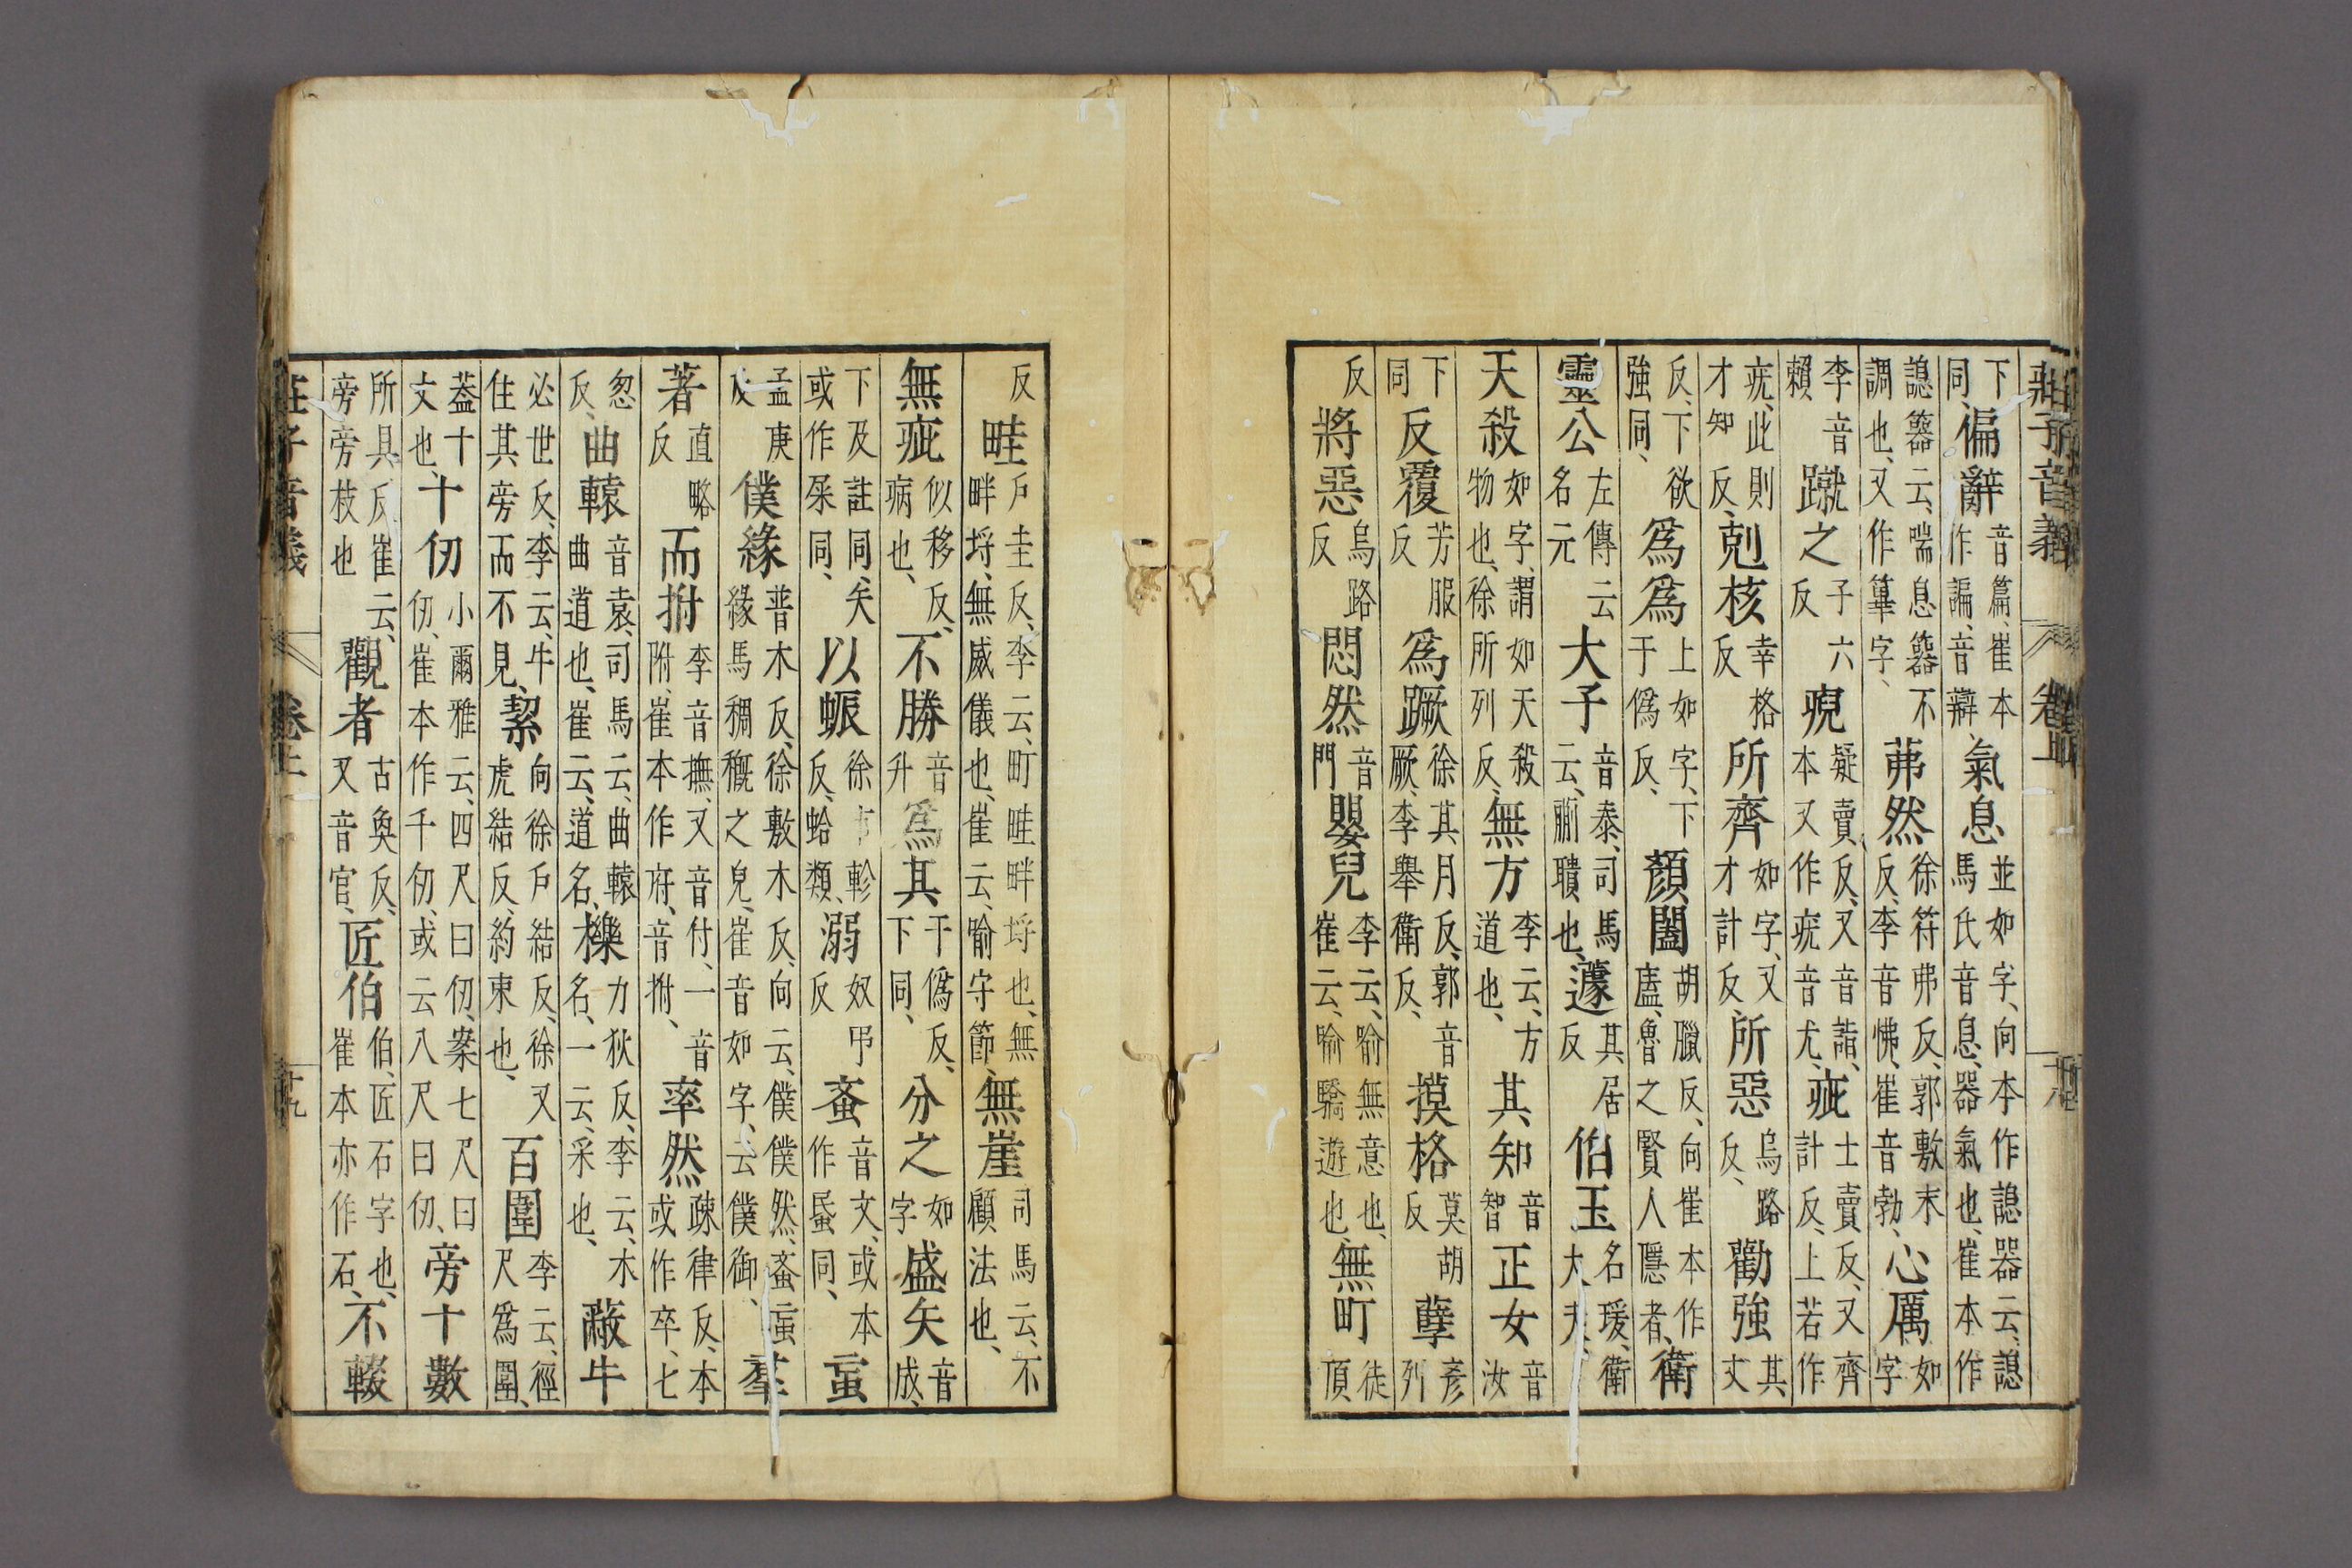 莊子音義 卷上 十八
下同、偏辭音篇、崔本作諞、音辯、氣息並如字、向本作諰器、云、諰馬氏音息、器氣也、崔本作
諰簭、云、喘息簭不調也、又作篳字、茀然徐符弗反、郭敷末反、李音怫、崔音勃、心厲如字
李音賴蹴之子六反睨疑賣反、又音詣、本又作疣、音尤、疵士賣反、又齊計反、上若作
疣、此則才知反、剋核幸格反所齊如字、又才計反、所惡烏路反、勸強其丈
反、下欲強同、爲爲上如字、下于僞反、顏闔胡臘反、向崔本作盧、魯之賢人隱者、衛
靈公左傳云名元大子音泰、司馬云、蒯聵也、蘧其居反伯玉名瑗、衛大夫、
天殺如字、謂如天殺物也、徐所列反、無方李云、方道也、其知音智正女音汝
下同反覆芳服反爲蹶徐其月反、郭音厥、李舉衛反、摸格莫胡反孽彥列
反將惡烏路反悶然音門嬰兒李云、喻無意也、崔云、喻驕遊也、無町徒頂
反畦戶圭反、李云、町畦畔埒也、無畔埒、無威儀也、崔云、喻守節、無崖司馬云、不顧法也、
無疵似移反、病也、不勝音升爲其于僞反、下同、分之如字盛矢音成、
下及註同、矢或作屎同、以蜄徐市軫反、蛤類、溺奴弔反蚉音文、或本作䘇同、䖟
孟庚反僕緣普木反、徐敷木反、向云、僕僕然、蚉䖟緣馬稠穊之皃、崔音如字、云僕御、羣
著直略反而拊李音撫、又音付、一音附、崔本作府、音拊、率然疎律反、本或作卒、七
忽反、曲轅音袁、司馬云、曲轅曲道也、崔云、道名、櫟力狄反、李云、木名、一云、采也、蔽牛
必世反、李云、牛住其旁而不見、絜向徐戶結反、徐又虎結反、約束也、百圍李云、徑尺爲圍、
葢十丈也、十仞小爾雅云、四尺曰仞、案七尺曰仞、崔本作千仞、或云八尺曰仞、旁十數
所具反崔云、旁旁枝也觀者古奐反、又音官、匠伯伯、匠石字也、崔本亦作石、不輟
莊子音義 卷上 十九